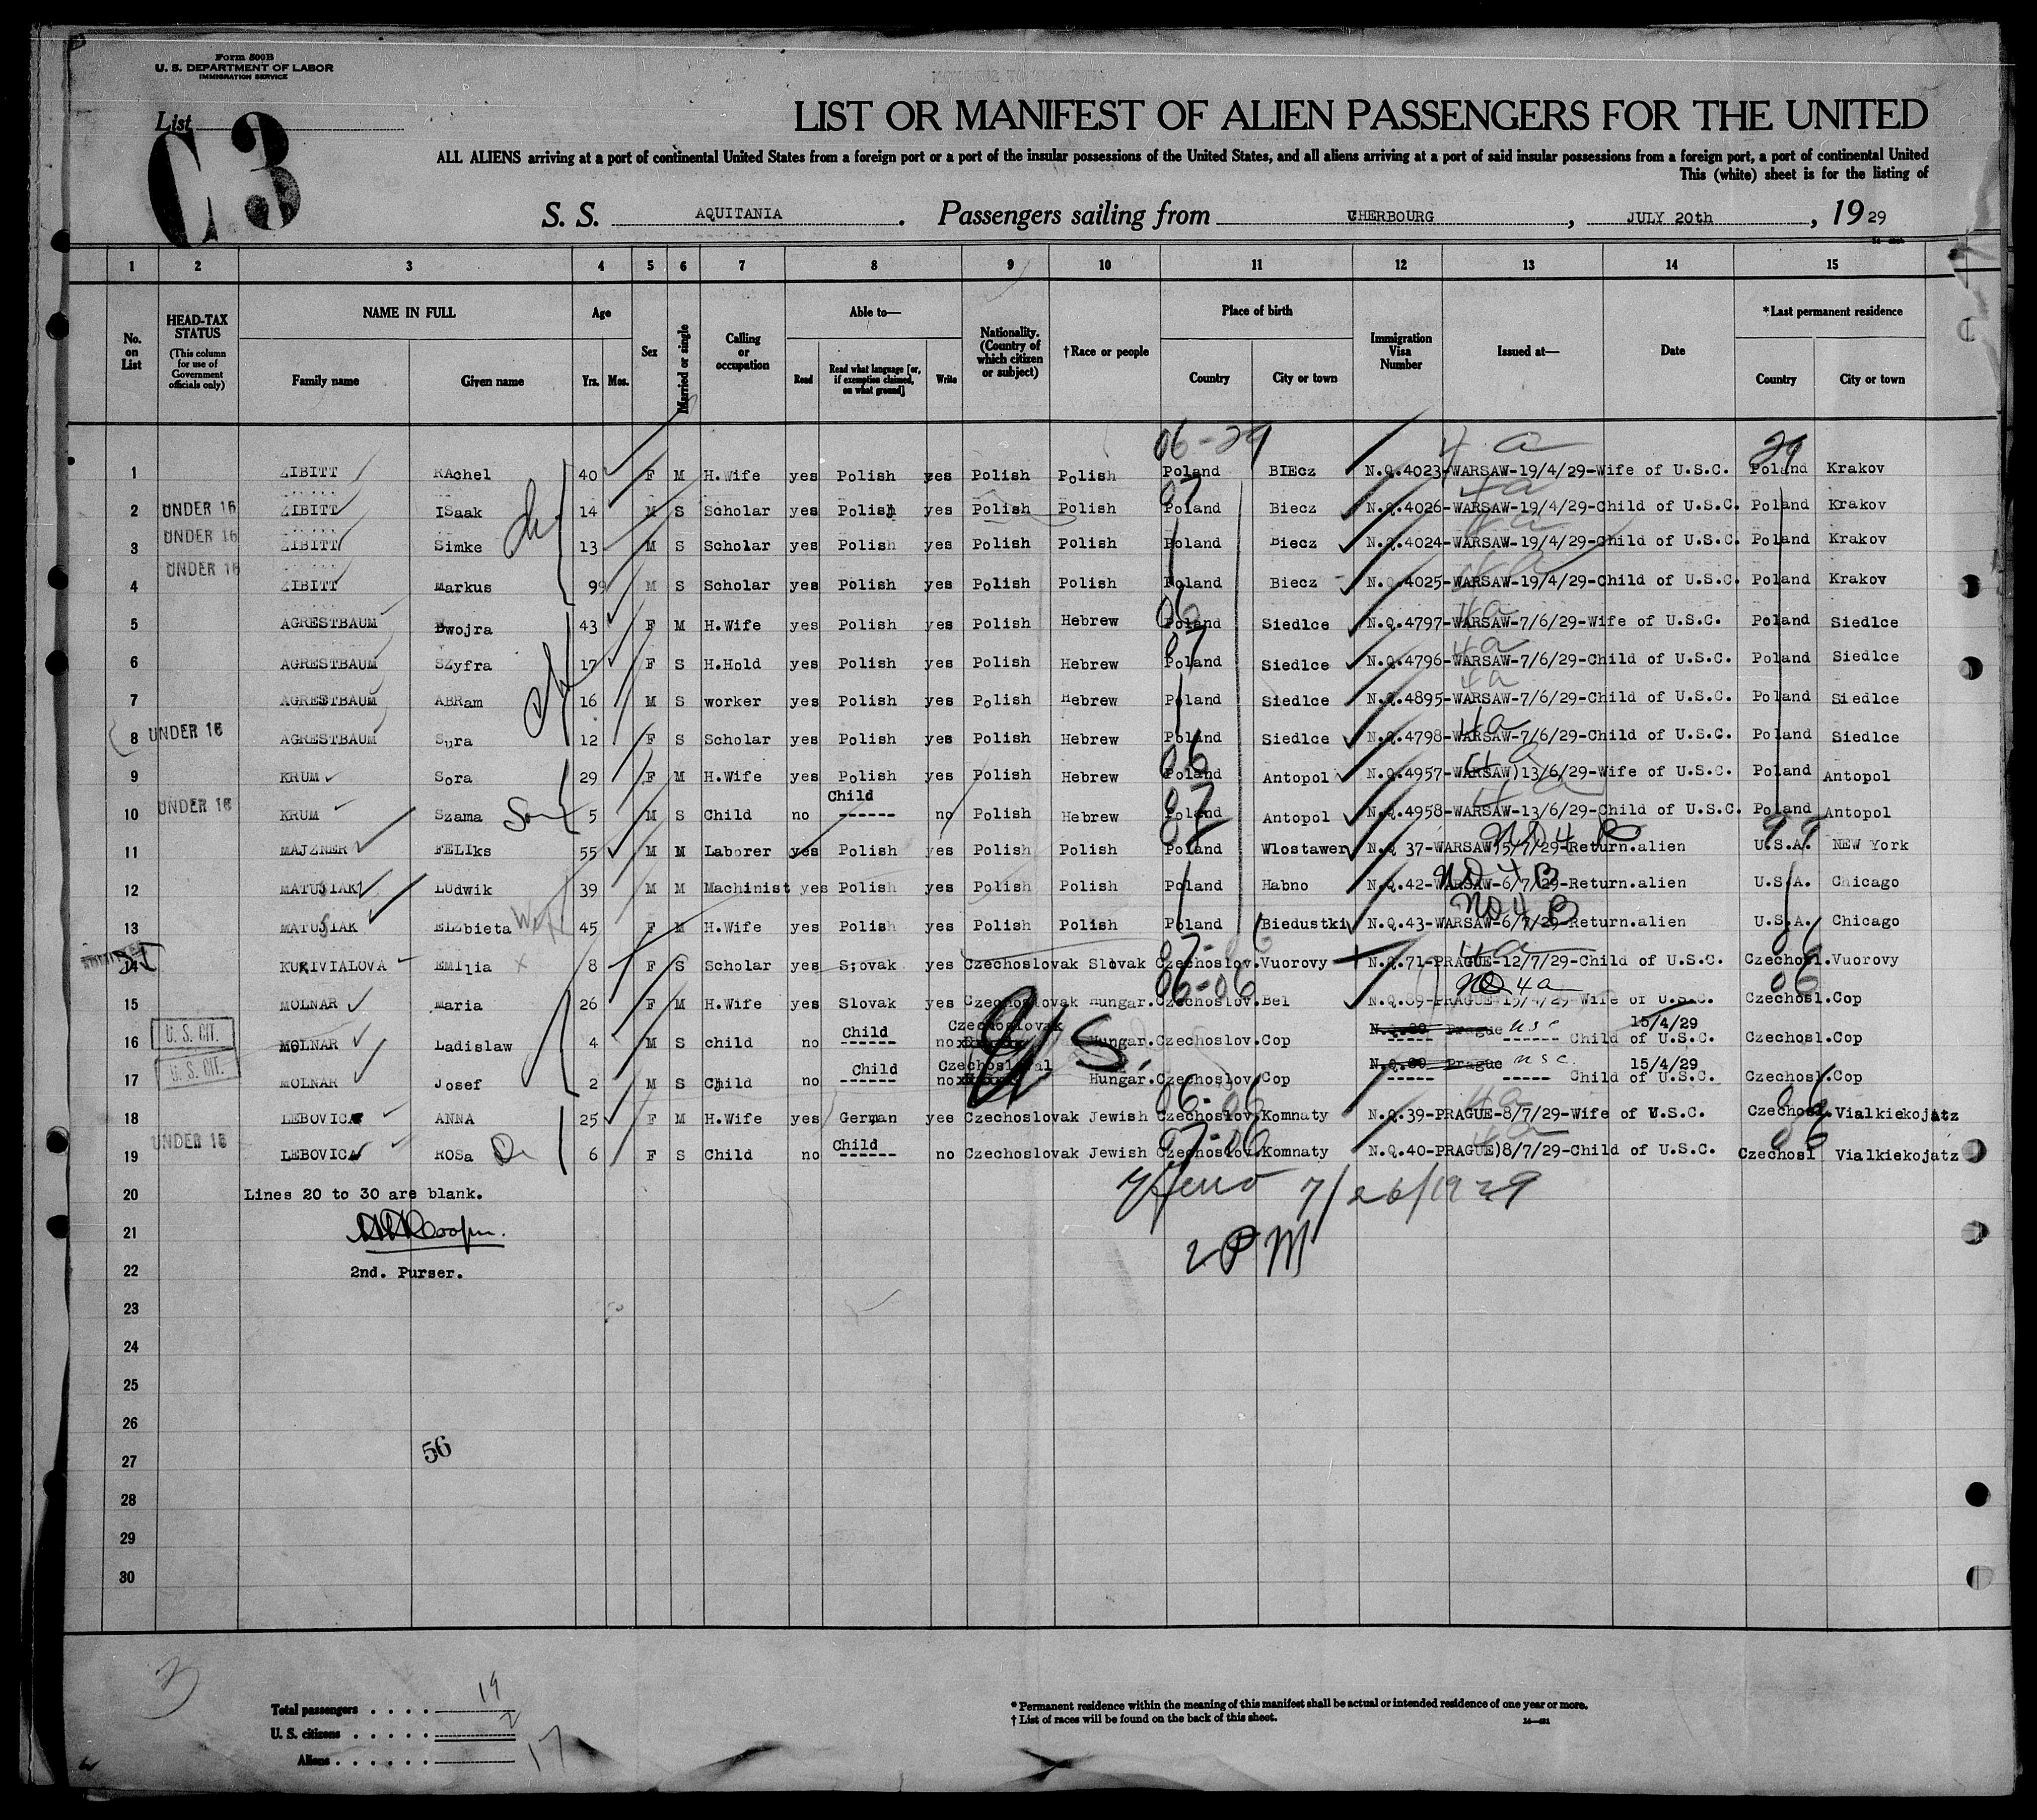 Form 500B
U. S. DEPARTMENT OF LABOR
IMMIGRATION SERVICE
List
C 3
LIST OR MANIFEST OF ALIEN PASSENGERS FOR THE UNITED
ALL ALIENS arriving at a port of continental United States from a foreign port or a port of the insular possessions of the United States, and all aliens arriving at a port of said insular possessions from a foreign port, a port of continental United
This (white) sheet is for the listing of
S. S. AQUITANIA . Passengers sailing from CHERBOURG , JULY 20th , 19 29
1 2 3 4 5 6 7 8 9 10 11 12 13 14 15
No. on List
HEAD-TAX STATUS (This column for use of Government officials only)
NAME IN FULL Family name Given name
Age Yrs. Mos.
Sex
Married or single
Calling or occupation
Able to— Read Read what language [or, if exemption claimed, on what ground] Write
Nationality. (Country of which citizen or subject)
†Race or people
Place of birth Country City or town
Immigration Visa Number
Issued at—
Date
*Last permanent residence Country City or town
06-29 4 a 29
1 ZIBITT RAchel 40 F M H.Wife yes Polish yes Polish Polish Poland BIEcz N.Q.4023-WARSAW-19/4/29-Wife of U.S.C. Poland Krakov
07 4a
2 UNDER 16 ZIBITT ISaak 14 M S Scholar yes Polish yes Polish Polish Poland Biecz N.Q.4026-WARSAW-19/4/29-Child of U.S.C. Poland Krakov
3 UNDER 16 ZIBITT Simke 13 M S Scholar yes Polish yes Polish Polish Poland Biecz N.Q.4024-WARSAW-19/4/29-Child of U.S.C. Poland Krakov
4 UNDER 16 ZIBITT Markus 9 M S Scholar yes Polish yes Polish Polish Poland Biecz N.Q.4025-WARSAW-19/4/29-Child of U.S.C. Poland Krakov
06 4a
5 AGRESTBAUM Dwojra 43 F M H.Wife yes Polish yes Polish Hebrew Poland Siedlce N.Q.4797-WARSAW-7/6/29-Wife of U.S.C. Poland Siedlce
07 4a
6 AGRESTBAUM SZyfra 17 F S H.Hold yes Polish yes Polish Hebrew Poland Siedlce N.Q.4796-WARSAW-7/6/29-Child of U.S.C. Poland Siedlce
4a
7 AGRESTBAUM ABRam 16 M S worker yes Polish yes Polish Hebrew Poland Siedlce N.Q.4895-WARSAW-7/6/29-Child of U.S.C. Poland Siedlce
4a
8 UNDER 16 AGRESTBAUM Sura 12 F S Scholar yes Polish yes Polish Hebrew Poland Siedlce N.Q.4798-WARSAW-7/6/29-Child of U.S.C. Poland Siedlce
06 4a
9 KRUM Sora 29 F M H.Wife yes Polish yes Polish Hebrew Poland Antopol N.Q.4957-WARSAW)13/6/29-Wife of U.S.C. Poland Antopol
07 4 a
10 UNDER 16 KRUM Szama Son 5 M S Child no Child ------ no Polish Hebrew Poland Antopol N.Q.4958-WARSAW-13/6/29-Child of U.S.C. Poland Antopol
ND 4 B 99
11 MAJZNER FELIks 55 M M Laborer yes Polish yes Polish Polish Poland Wlostawer N.Q 37-WARSAW)5/7/29-Return.alien U.S.A. NEW York
ND 4 B
12 MATUSIAK LUdwik 39 M M Machinist yes Polish yes Polish Polish Poland Habno N.Q.42-WARSAW-6/7/29-Return.alien U.S.A. Chicago
ND 4 B
13 MATUSIAK ELZbieta 45 F M H.Wife yes Polish yes Polish Polish Poland Biedustki N.Q.43-WARSAW-6/7/29-Return.alien U.S.A. Chicago
07-06 4a 06
14 KURIVIALOVA EMIlia x 8 F S Scholar yes Slovak yes Czechoslovak Slovak Czechoslov. Vuorovy N.Q.71-PRAGUE-12/7/29-Child of U.S.C. Czechosl. Vuorovy
06-06 ND 4a 06
15 MOLNAR Maria 26 F M H.Wife yes Slovak yes Czechoslovak Hungar. Czechoslov. Bel N.Q.89-PRAGUE-15/4/29-Wife of U.S.C. Czechosl. Cop
U. S. CIT. Child Czechoslovak N.Q.80 Prague usc 15/4/29
16 MOLNAR Ladislaw 4 M S child no ------ no Hungar. Czechoslov. Cop ----- ----- Child of U.S.C. Czechosl. Cop
U. S.
U. S. CIT. Child N.Q.80 Prague usc 15/4/29
17 MOLNAR Josef 2 M S Child no ------ no Hungar. Czechoslov. Cop ----- ----- Child of U.S.C. Czechosl. Cop
06-06 4a 06
18 LEBOVICA ANNA 25 F M H.Wife yes German yes Czechoslovak Jewish Czechoslov. Komnaty N.Q.39-PRAGUE-8/7/29-Wife of U.S.C. Czechosl. Vialkiekojatz
UNDER 16 Child 07-06 4a 06
19 LEBOVICA ROSa Da 6 F S Child no ------ no Czechoslovak Jewish Czechoslov. Komnaty N.Q.40-PRAGUE)8/7/29-Child of U.S.C. Czechosl Vialkiekojatz
20 Lines 20 to 30 are blank.
7/26/1929
21
2 PM
22 2nd. Purser.
23
24
25
26
56
27
28
29
30
3
Total passengers . . . . 19
U. S. citizens . . . . . 2
Aliens . . . . . . 17
* Permanent residence within the meaning of this manifest shall be actual or intended residence of one year or more.
† List of races will be found on the back of this sheet.